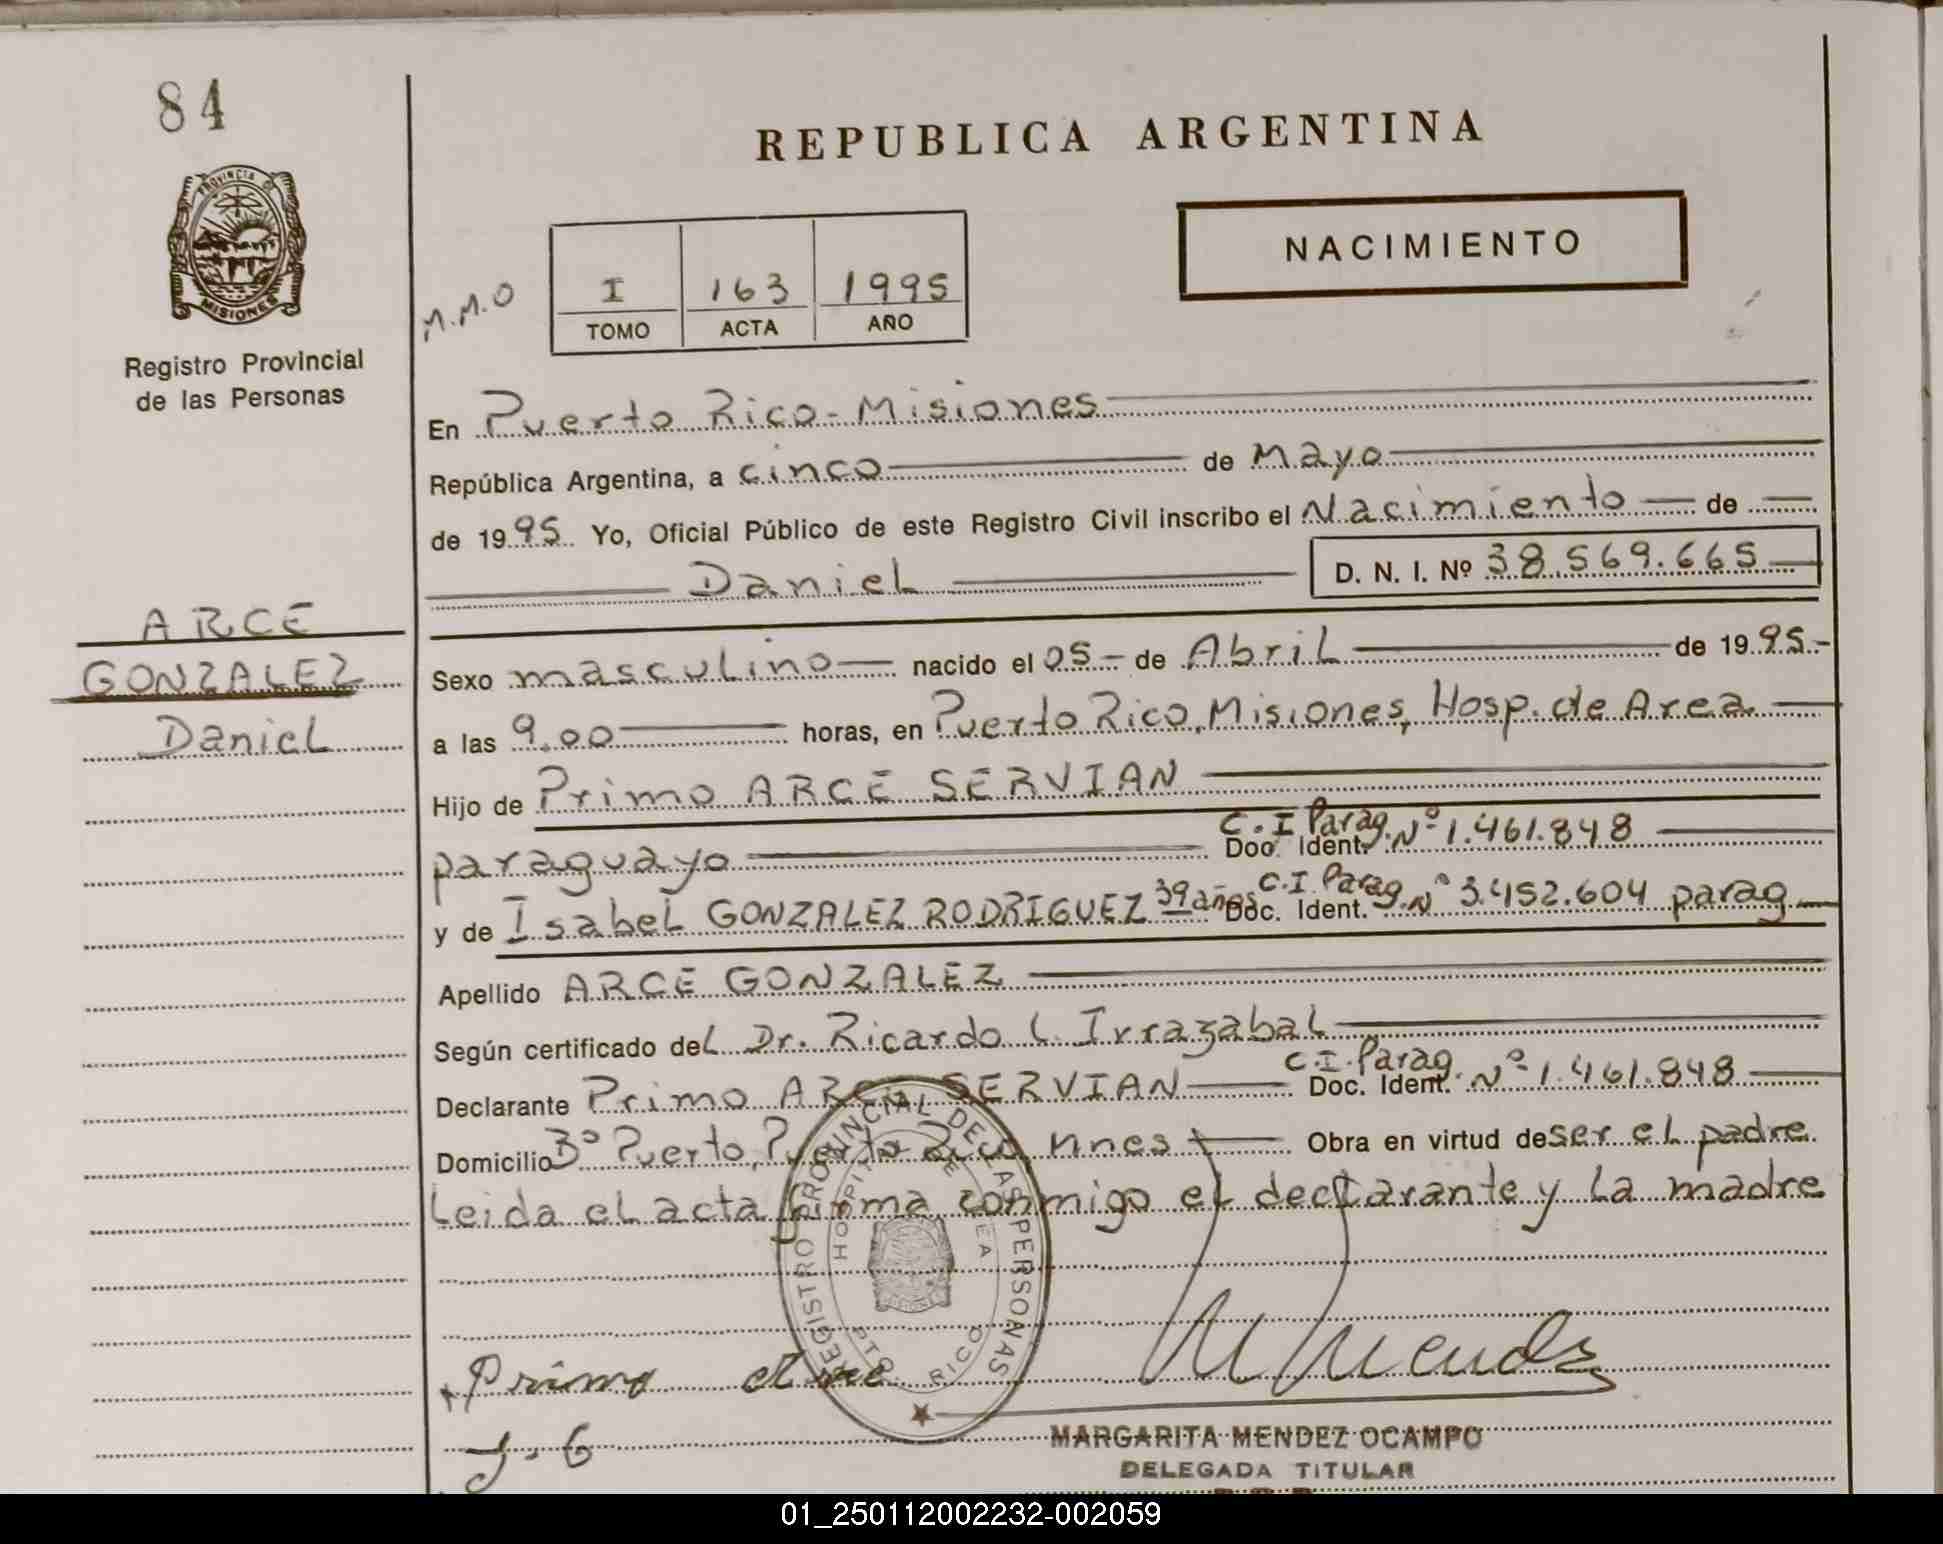 84
PROVINCIA DE
MISIONES
Registro Provincial
de las Personas
ARCE
GONZALEZ
Daniel
REPUBLICA ARGENTINA
M.M.O
I 163 1995
TOMO ACTA AÑO
NACIMIENTO
En Puerto Rico - Misiones
República Argentina, a cinco de Mayo
de 1995 Yo, Oficial Público de este Registro Civil inscribo el Nacimiento de
Daniel D. N. I. Nº 38.569.665
Sexo masculino nacido el 05 - de Abril de 1995.-
a las 9.00 horas, en Puerto Rico, Misiones, Hosp. de Area
Hijo de Primo ARCE SERVIAN
paraguayo Doc. Ident. C.I Parag. Nº 1.461.848
y de Isabel GONZALEZ RODRIGUEZ 39 años Doc. Ident. C.I. Parag. Nº 3.452.604 parag
Apellido ARCE GONZALEZ
Según certificado del Dr. Ricardo L. Irrazabal
Declarante Primo ARCE SERVIAN Doc. Ident. C.I. Parag. Nº 1.461.848
Domicilio Bº Puerto, Puerto Rico, Mnes Obra en virtud de ser el padre
Leida el acta firma conmigo el declarante y la madre
REGISTRO PROVINCIAL DE LAS PERSONAS
HOSPITAL DE AREA
PTO RICO
MISIONES
Primo Arce
J. G
M Mendez
MARGARITA MENDEZ OCAMPO
DELEGADA TITULAR
01_250112002232-002059